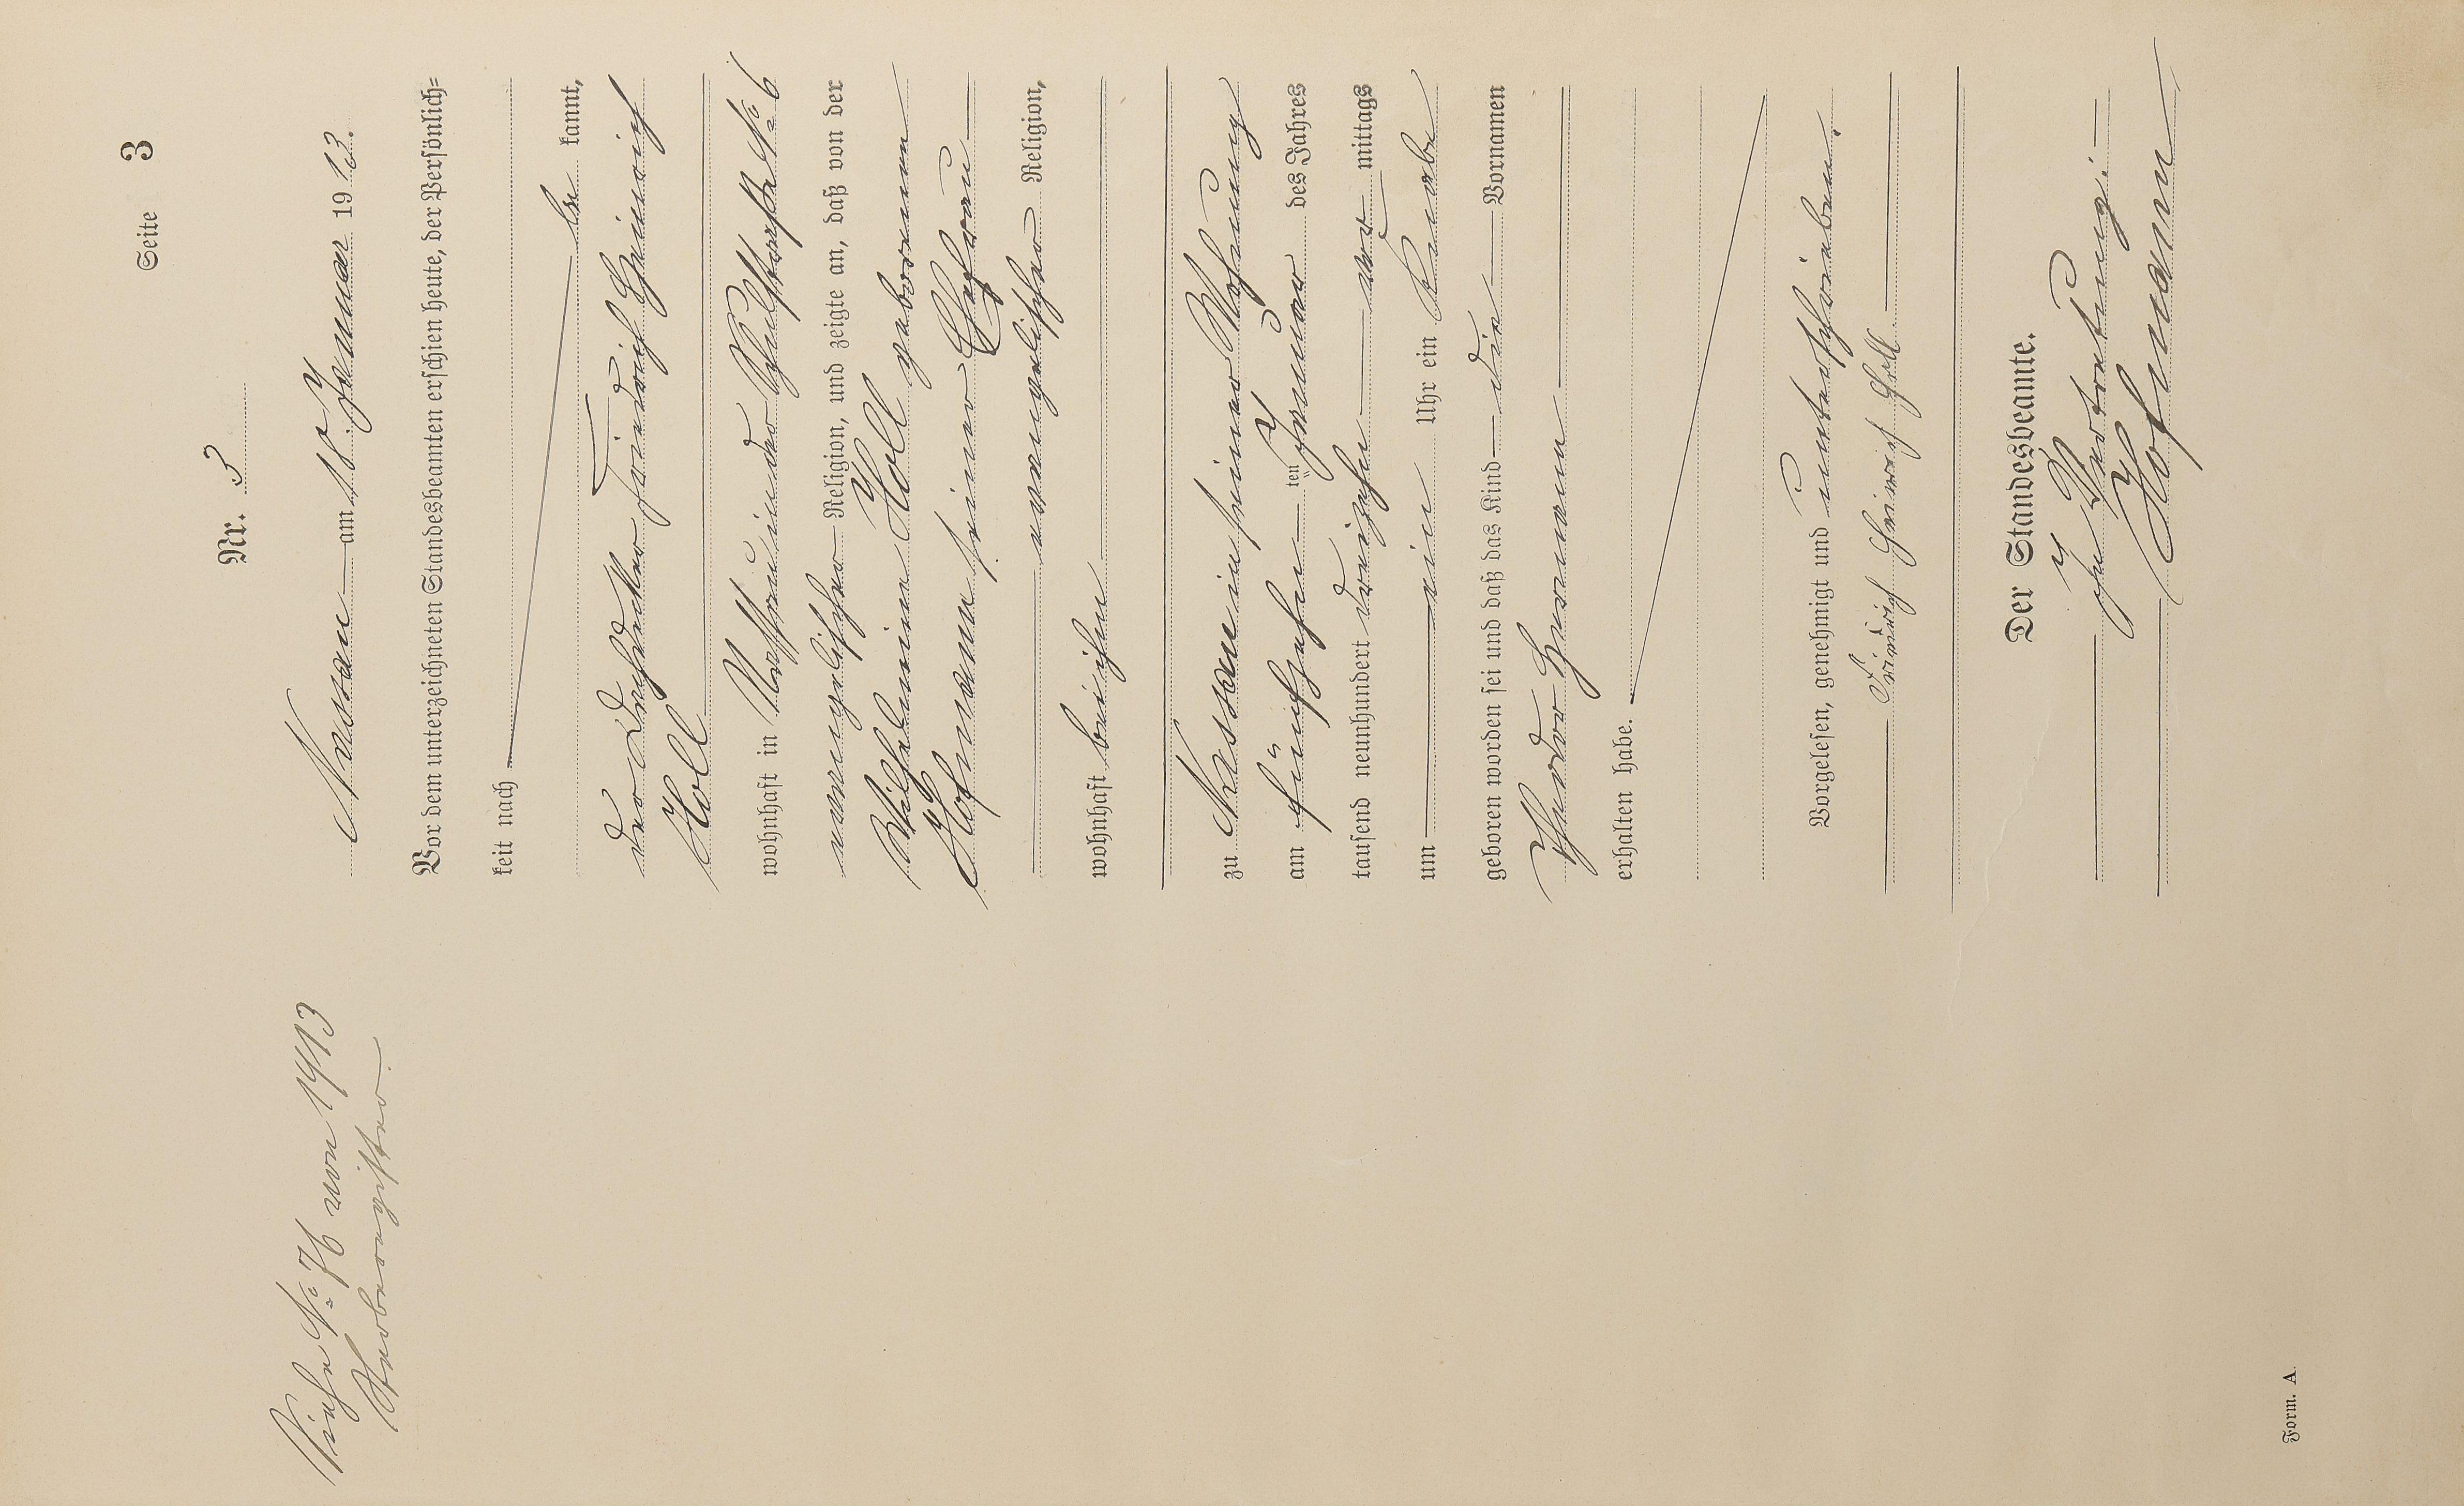 Seite 3
Nr. 3
Nassau am 18. Januar 1913.
Vor dem unterzeichneten Standesbeamten erschien heute, der Persönlich=
keit nach be kannt,
der Dachdecker Friedrich Heinrich
Holl
wohnhaft in Nassau in der Schulstraße No 6
evangelischer Religion, und zeigte an, daß von der
Wilhelmine Holl geborenen
Hofmann seiner Ehefrau
evangelischer Religion,
wohnhaft bei ihm
zu Nassau in seiner Wohnung
am fünfzehn ten Januar des Jahres
tausend neunhundert dreizehn vor mittags
um ein Uhr ein Knabe
geboren worden sei und daß das Kind die Vornamen
Theodor Hermann
erhalten habe.
Vorgelesen, genehmigt und unterschrieben.
Friedrich Heinrich Holl.
Der Standesbeamte.
In Vertretung:
Hofmann
Siehe No 76 von 1913
Sterberegister.
Form. A.